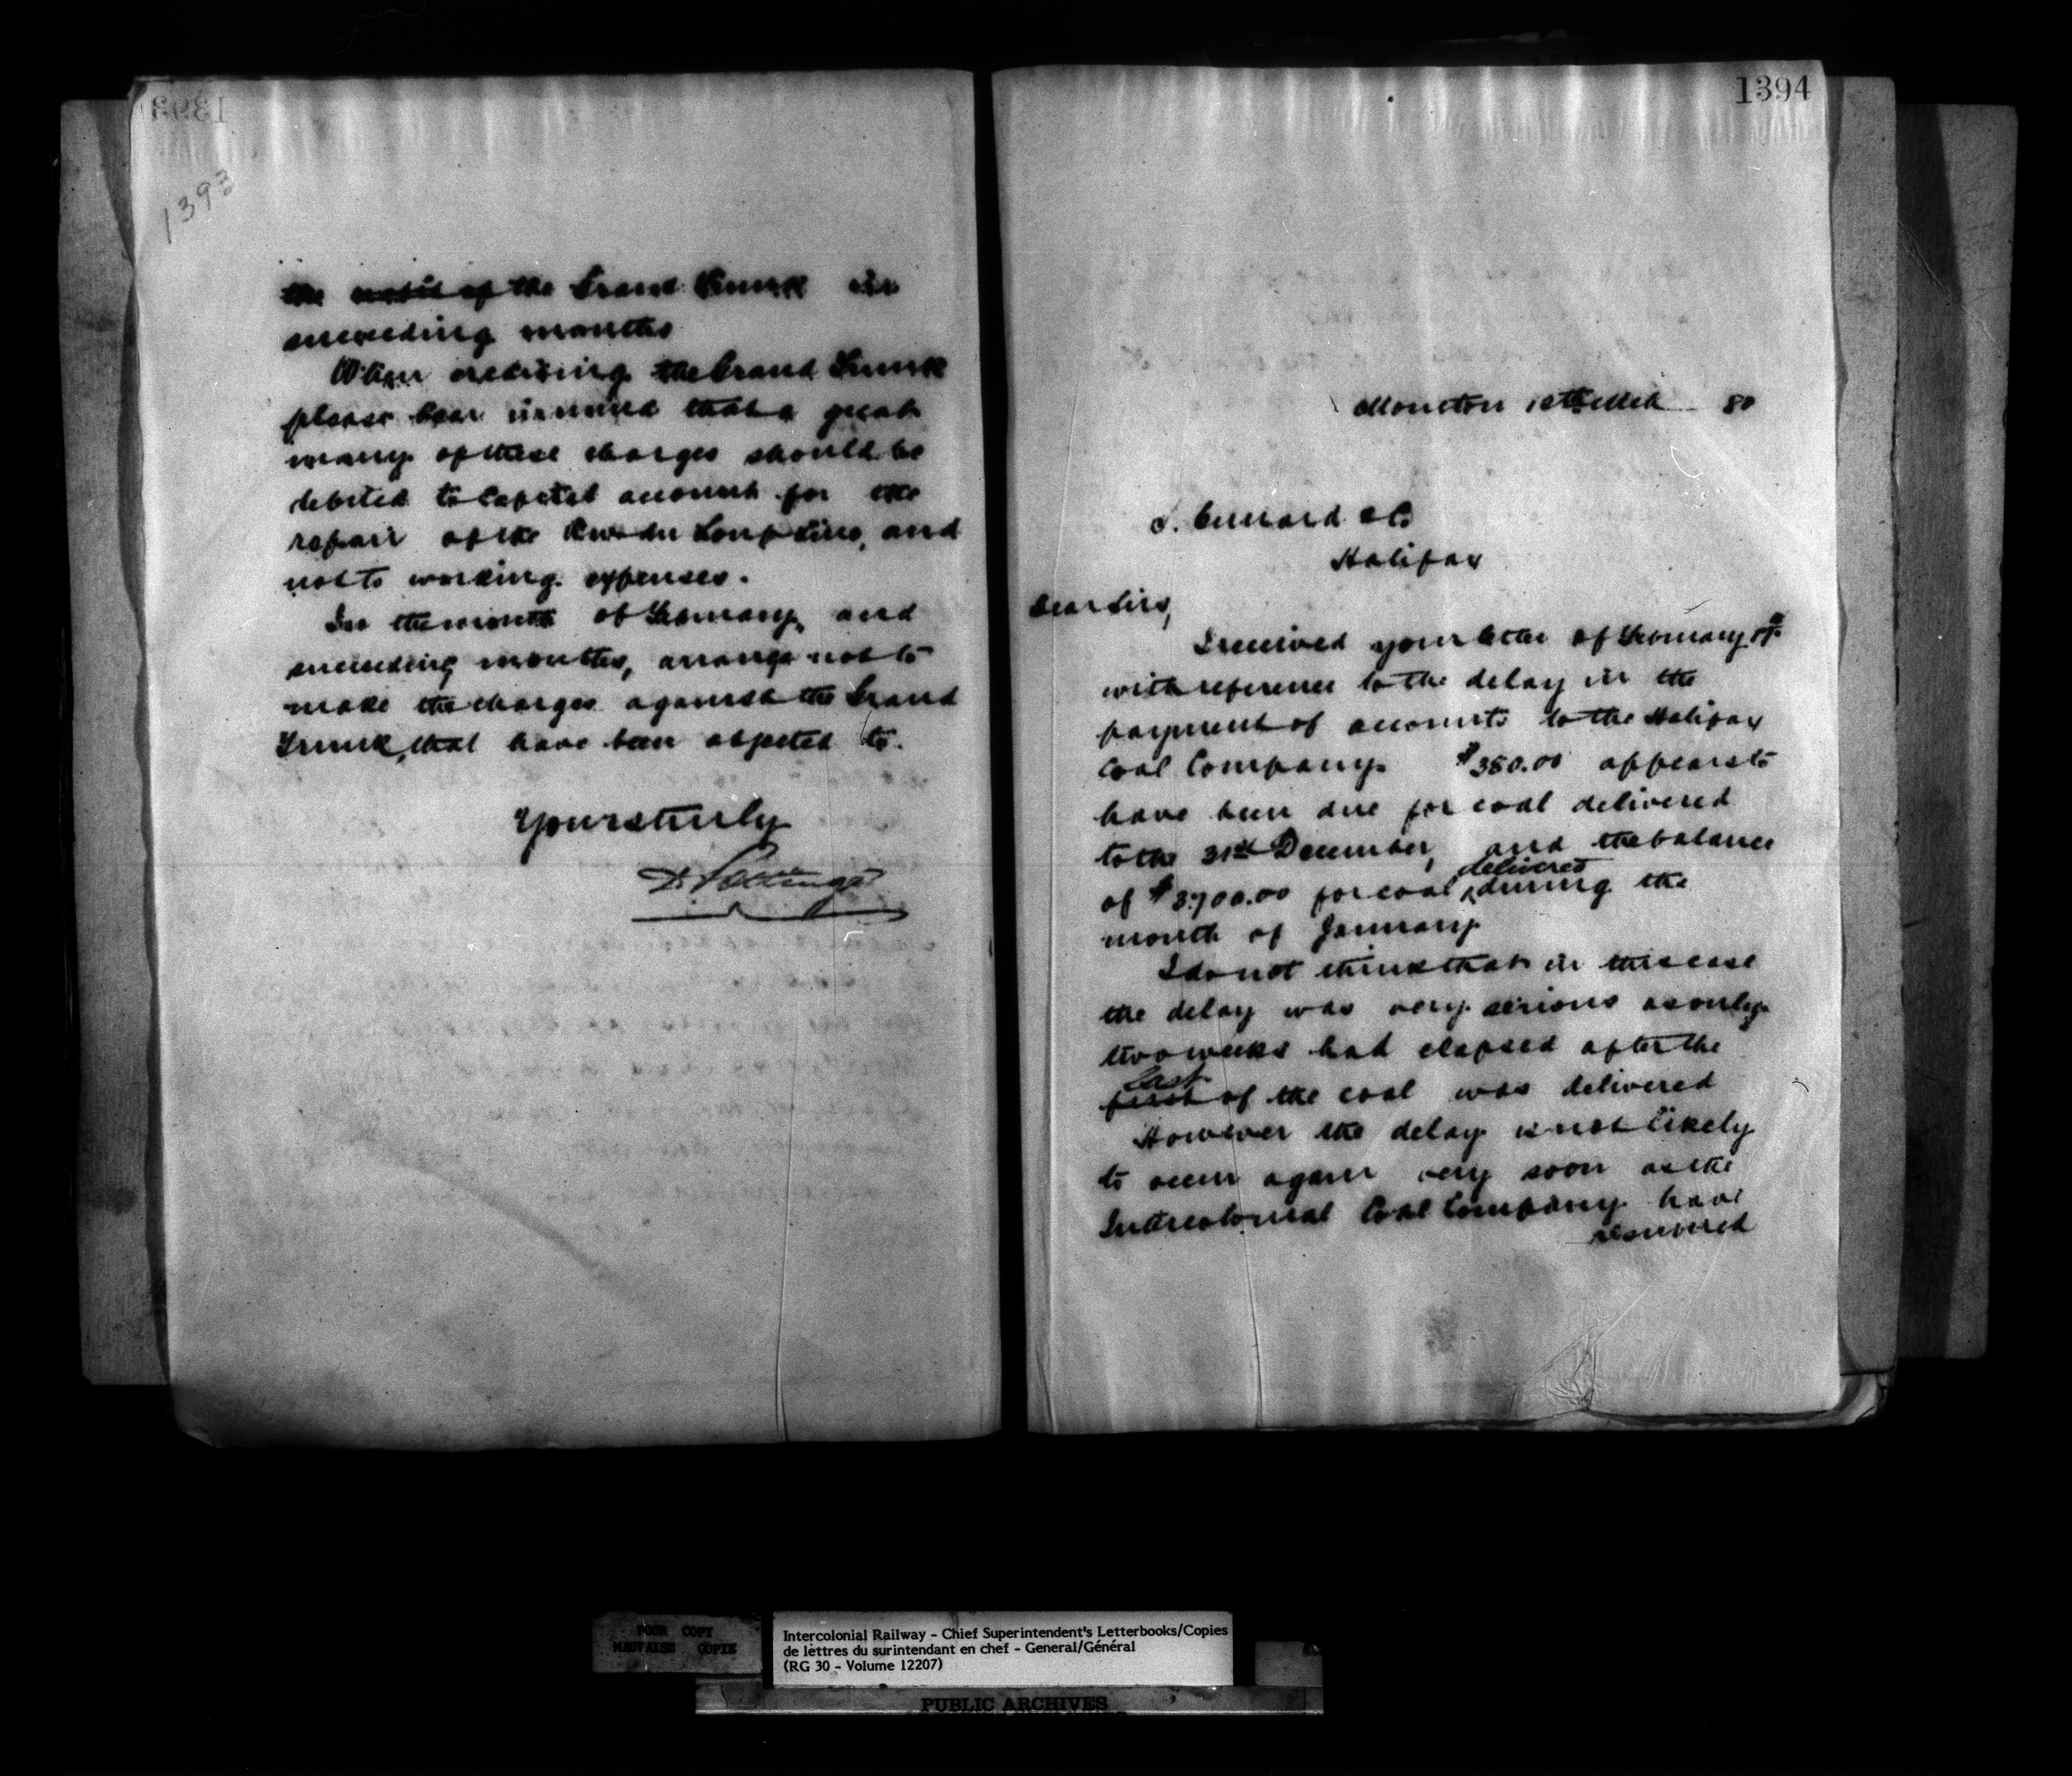 1393
1393
the of the Grand Trunk in
succeeding months
When crediting the Grand Trunk
please bear in mind that a great
many of these charges should be
debited to Capital account for the
repair of the Riv du Loup Line, and
not to working expenses.
In the month of February, and
succeeding months, arrange not to
make the charges against the Grand
Trunk, that have been objected to.
Yours truly
D. Pottinger
1394
Moncton Mch 80
S. Cunard & Co
Halifax
Dear Sirs,
I received your letter of February
with reference to the delay in the
payment of accounts to the Halifax
Coal Company. $380.00 appears to
have been due for coal delivered
to the 31st December, and the balance
delivered
of $3700.00 for coal during the
month of January
I do not think that in this case
the delay was very serious as only
two weeks had elapsed after the
last
first of the coal was delivered
However the delay is not likely
to occur again very soon as the
Intercolonial Coal Company have
POOR COPY
MAUVAISE COPIE
Intercolonial Railway - Chief Superintendent's Letterbooks/Copies
de lettres du surintendant en chef - General/Général
(RG 30 - Volume 12207)
PUBLIC ARCHIVES